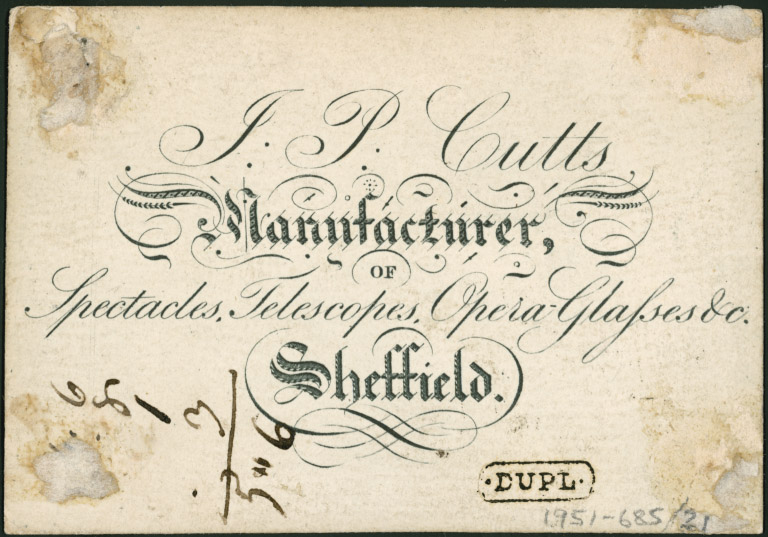 J. P. Cutts
Manufacturer,
OF
Spectacles, Telescopes, Opera-Glaſses &c.
Sheffield.
·DUPL·
1951-685/21